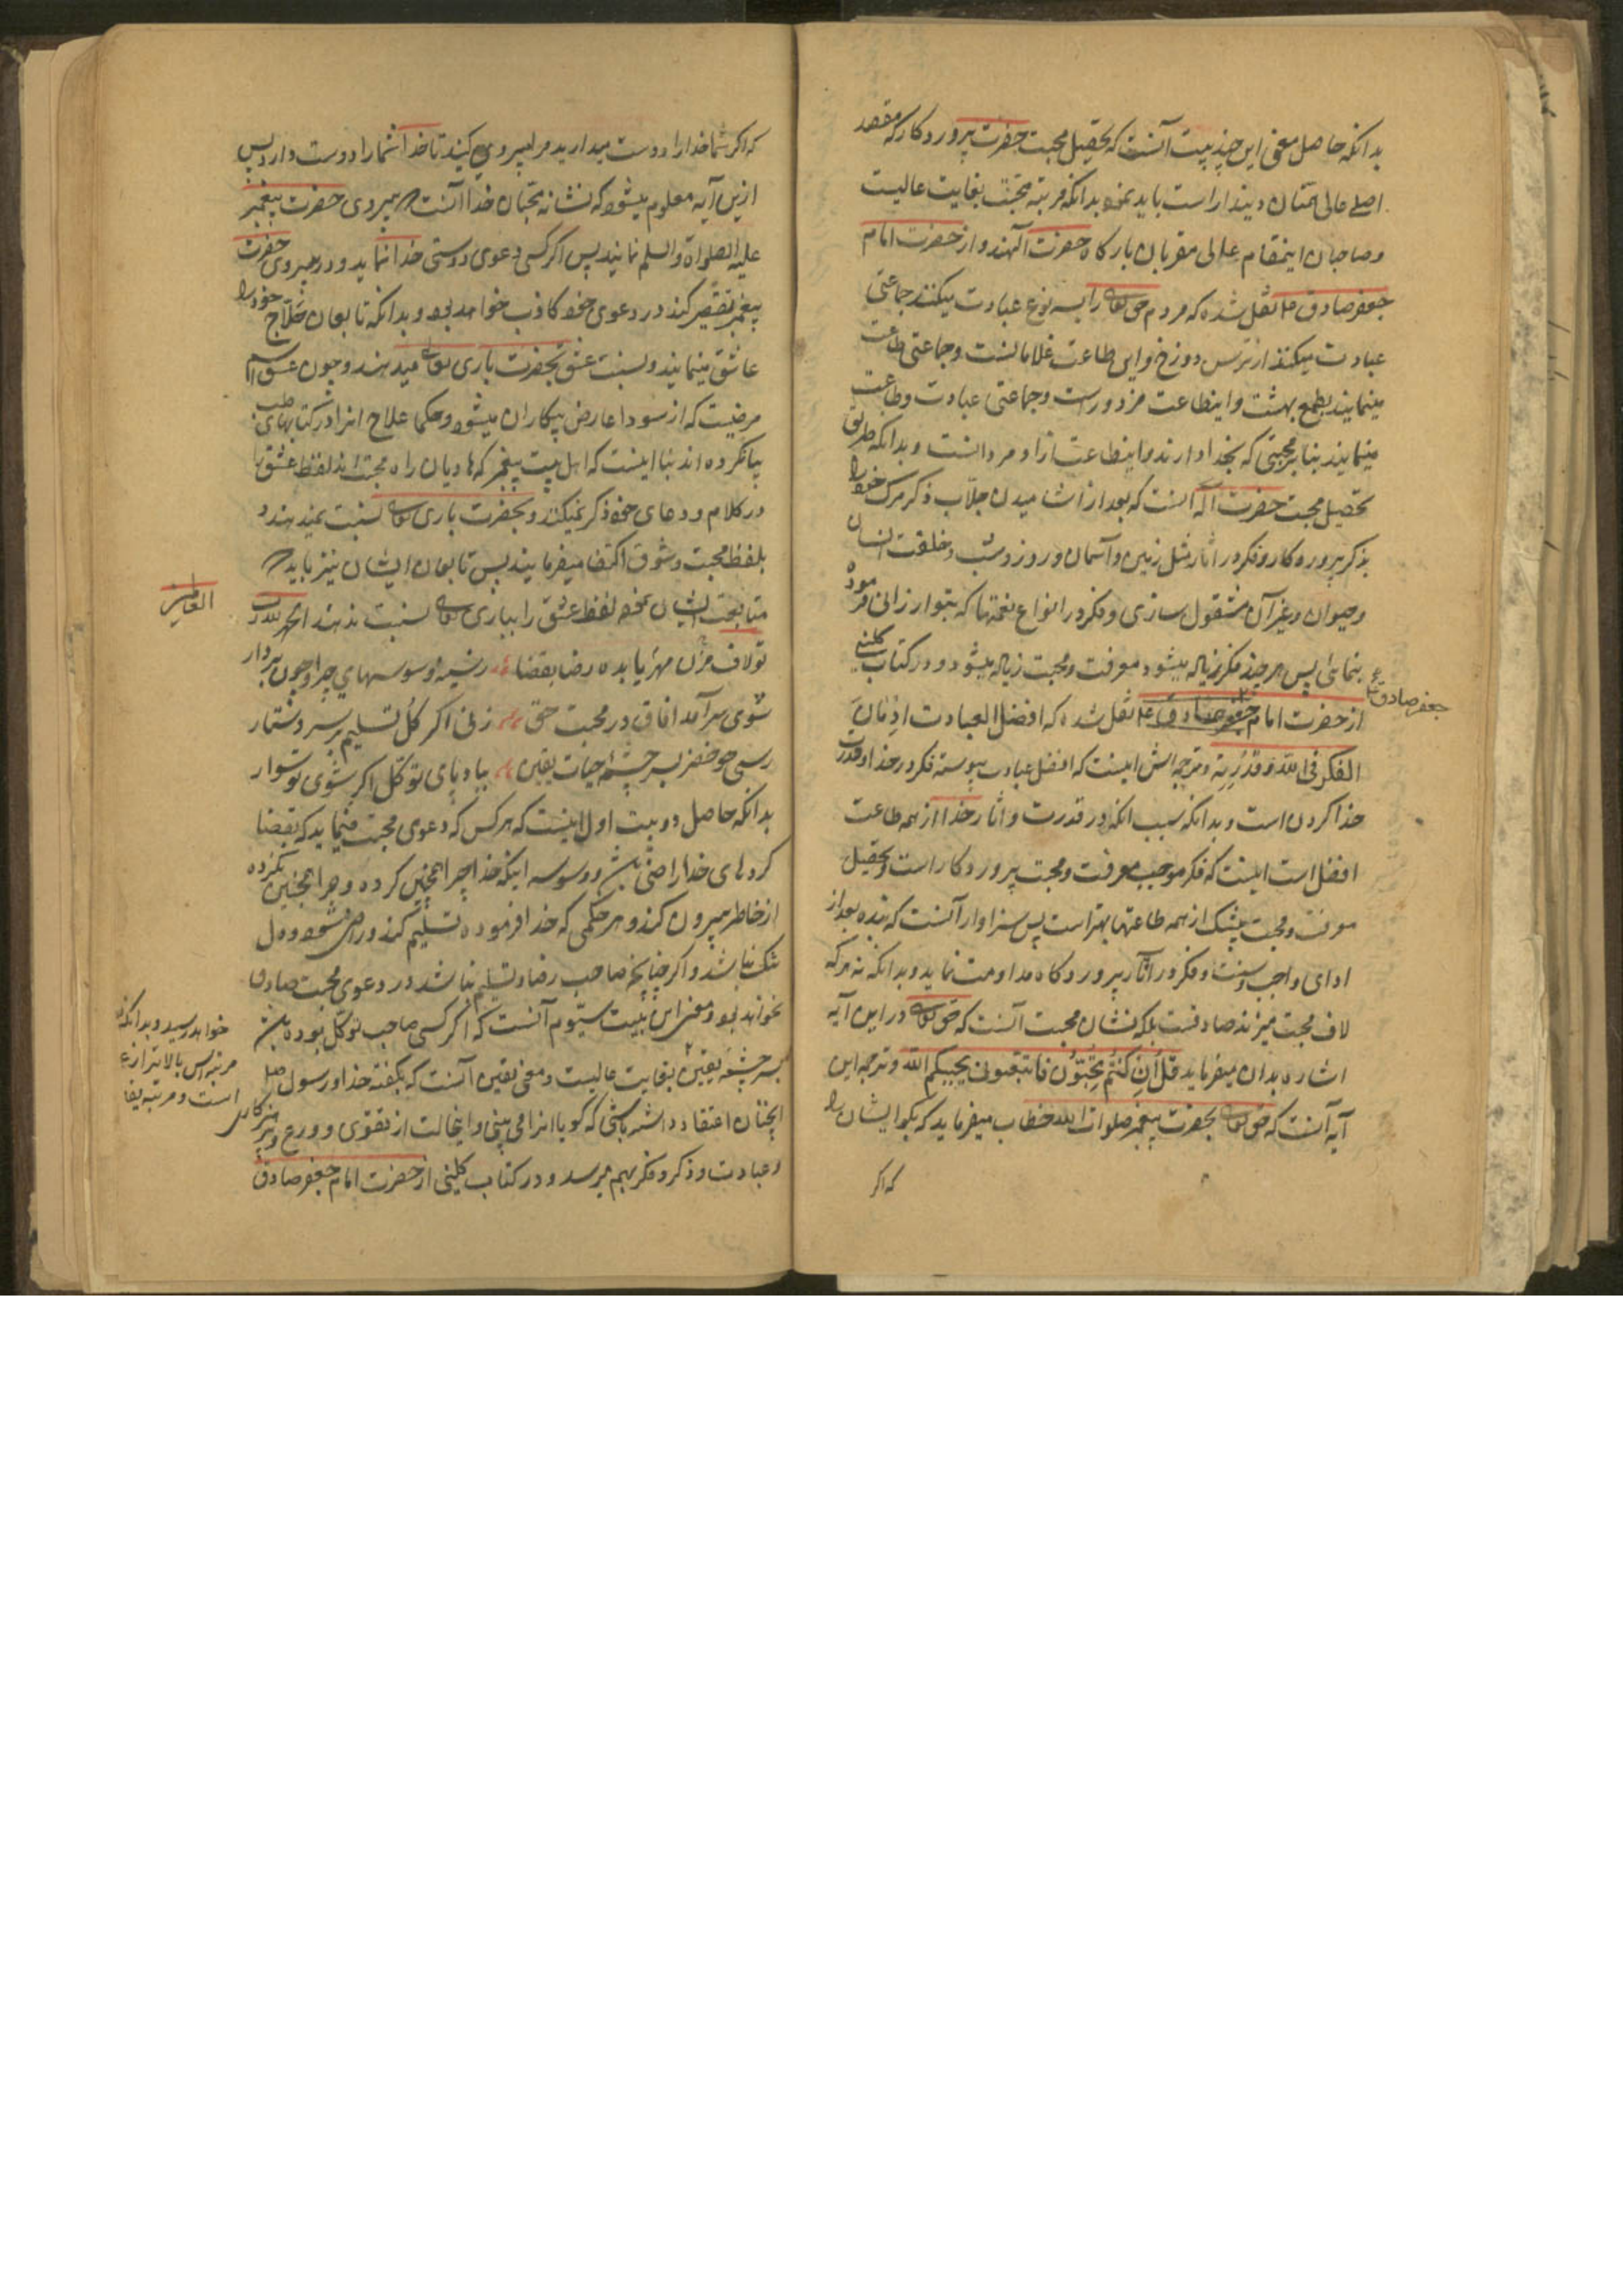 بدانکه حاصل معنی این چند بیت آنست که تحصیل محبت حضرت پروردکار که مقصد
اصلے عالی همتان دینداراست باید نمود بدانکه مرتبهٔ محبت بغایت عالیست
وصاحبان اینمقام عالی مقربان بارکاه حضرت آلهند و از حضرت امام
جعفر صادق ع نقل شده که مردم حق تعالی را بسه نوع عبادت میکنند جماعتی
عبادت میکنند از ترس دوزخ و این طاعت غلامانست و جماعتی طاعت
مینمایند بطمع بهشت و اینطاعت مزدورانست و جماعتی عبادت وطاعت
مینمایند بنا بر محبتی که بخدا دارند و اینطاعت ازاد مردانست و بدانکه طریق
تحصیل محبت حضرت آله آنست که بعد از اشامیدن جلّاب ذکر مرک خود را
بذکر پروردکار و فکر در اثار مثل زمین و آسمان و روز و شب و خلقت انسان
وحیوان وغیر آن مشغول سازی و فکر در انواع نعمتها که بتو ارزانی فرموده
بنمائی پس هر چند فکر زیاده میشود معرفت و محبت زیاده میشود و در کتاب کلینی
از حضرت امام جعفر صادق ع نقل شده که افضل العبادت ادمان
جعفر صادق ع
الفکر فی الله و قدرته و ترجمه اش اینست که افضل عبادت پیوسته فکر در خدا و قدرت
خدا کردن است و بدانکه سبب انکه در قدرت و اثار خدا از همه طاعت
افضل است اینست که فکر موجب معرفت و محبت پروردکار است و تحصیل
معرفت و محبت بیشک از همه طاعتها بهتر است پس سزاوار آنست که بنده بعد از
ادای واجب و سنت و فکر در آثار پروردکاه مداومت نماید و بدانکه نه هر که
لاف محبت میزند صادقست بلکه نشان محبت آنست که حق تعالی در این آیه
اشاره بدان میفرماید قل ان کنتم تحبون فاتبعونی یحببکم الله و ترجمه این
آیه آنست که حق تعالی بحضرت پیغمبر صلوات الله خطاب میفرماید که بکو ایشان را
که اکر
که اکر شما خدا را دوست میدارید مرا پیروی کنید تا خدا شما را دوست دارد پس
ازین آیه معلوم میشود که نشانه محبّان خدا آنست که پیروی حضرت پیغمبر
علیه الصلواة والسلم نمایند پس اکر کسی دعوی دوستی خدا نماید و در پیروی حضرت
پیغمبر تقصیر کند در دعوی خود کاذب خواهد بود و بدانکه تابعان حلّاج خود را
عاشق مینمایند و نسبت عشق بحضرت باری تعالی میدهند و چون عشق اسم
مرضیست که از سودا عارض بیکاران میشود و حکما علاج انرا در کتابهای طب
بیانکرده اند بنا اینست که اهل بیت پیغمبر که هادیان راه محبت اند لفظ عشق را
در کلام و دعای خود ذکر نمیکنند و بحضرت باری تعالی نسبت نمیدهند و
بلفظ محبت و شوق اکتفا میفرمایند پس تابعان ایشان نیز باید که
متابعت ایشان نموده لفظ عشق را بباری تعالی نسبت ندهند الحمد لله رب
العالمین
تو لاف مزن مهر یا بده رضا بقضا رسیده وسوسهای چرا و چون بردار
شوی سرآمد افاق در محبت حق زنی اکر کل تسلیم بر سر دستار
رسی چو خضر بسر چشمهٔ حیات یقین بپا دپای توکّل اکر شوی تو سوار
بدانکه حاصل دو بیت اول اینست که هر کس که دعوی محبت مینماید که بقضا
کردهای خدا راضی باش و وسوسه اینکه خدا چرا اینچنین کرده و چرا اینچنین نکرده
از خاطر بیرون کند و هر حکمی که خدا فرموده تسلیم کند و راضی شود و دل
تنک نباشد و اکر چنانچه صاحب رضا و تسلیم نباشد در دعوی محبت صادق
نخواهد بود و معنی این بیت سیّوم آنست که اکر کسی صاحب توکّل بوده باش
بسرچشمهٔ یقین بغایت عالیست و معنی یقین آنست که بکفته خدا و رسول صل
خواهد رسید و بدانکه
مرتبه اس بالاتر از
است و مرتبه یقا
انچنان اعتقاد داشته باشی که کویا انرا می بینی و اینحالت از تقوی و ورع و پرهیزکاری
و عبادت و ذکر و فکر بهم میرسد و در کتاب کلینی از حضرت امام جعفر صادق